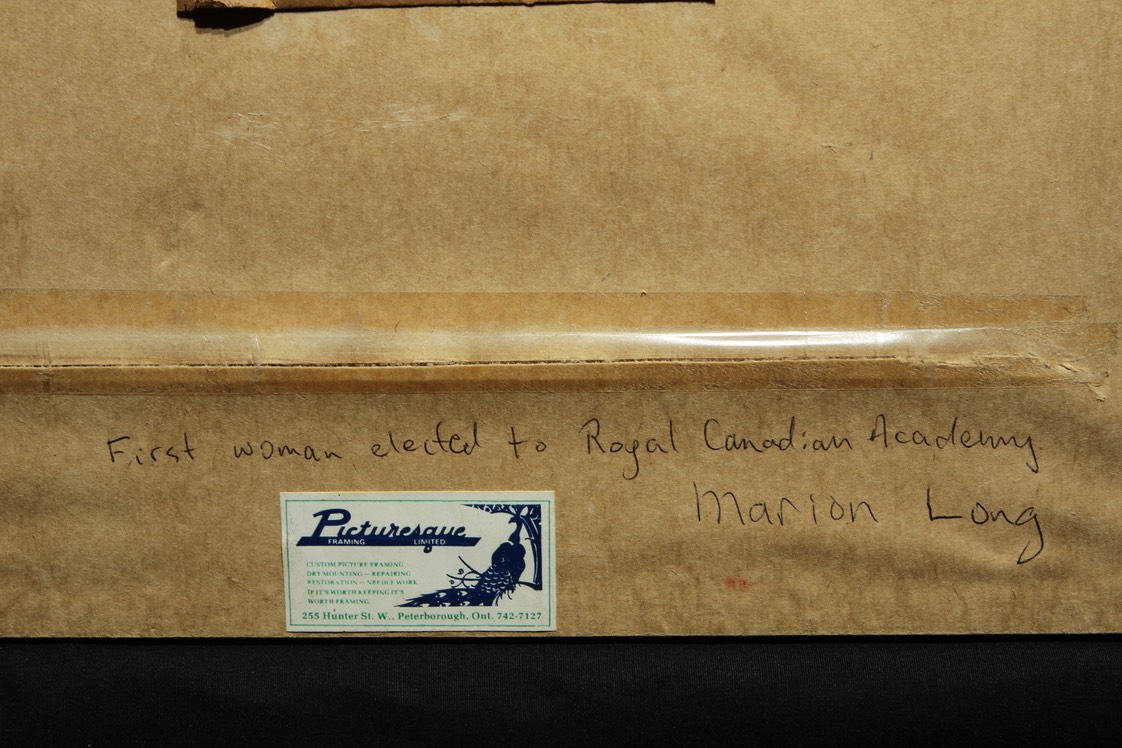 First woman elected to Royal Canadian Academy
Marion Long
Picturesque
FRAMING LIMITED
CUSTOM PICTURE FRAMING
DRY MOUNTING — REPAIRING
RESTORATION — NEEDLE WORK
IF IT'S WORTH KEEPING IT'S
WORTH FRAMING.
255 Hunter St. W., Peterborough, Ont. 742-7127